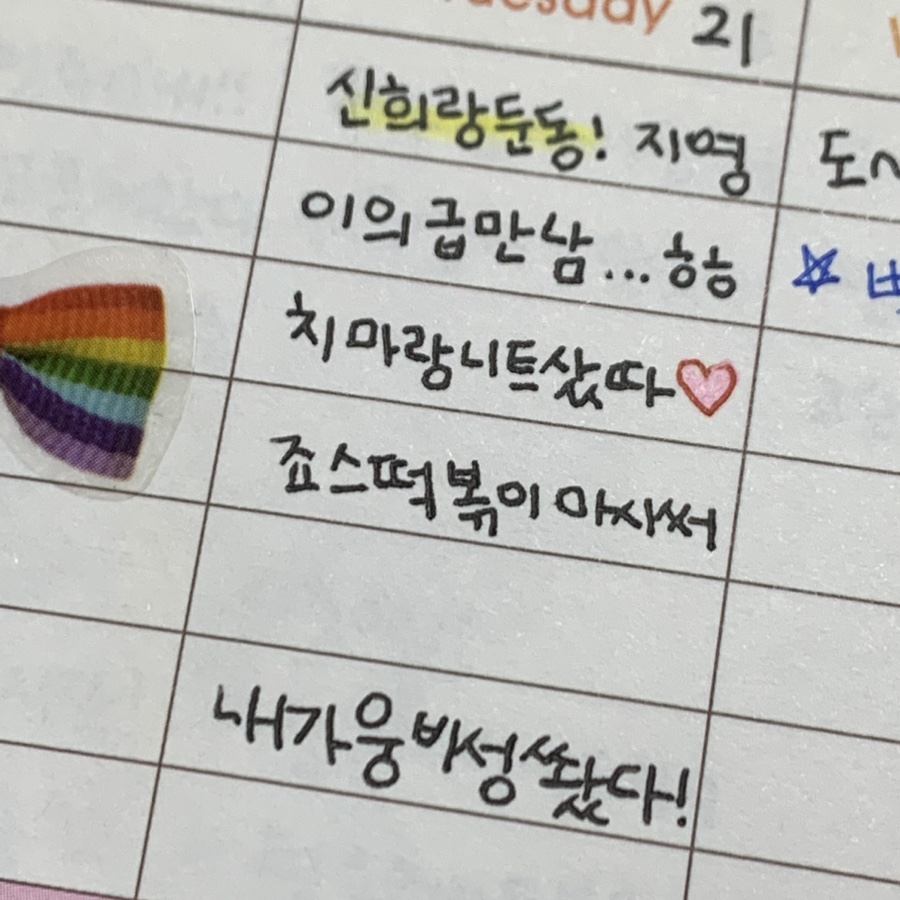 Tuesday 21
신희랑둔동! 지영
이의급만남...흐흐
치마랑니트샀따♡
죠스떡볶이마시써
내가웅비성쐈다!